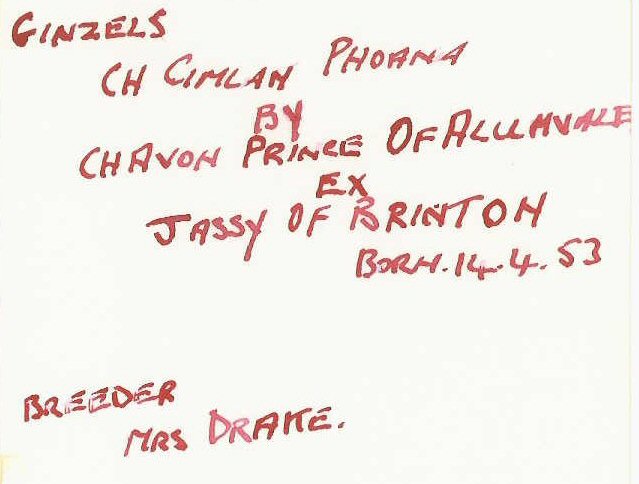 GINZELS
CH CIMLAN PHOANA
BY
CH AVON PRINCE OF ALUMVALE
EX
JASSY OF BRINTON
BORN. 14.4.53
BREEDER
MRS DRAKE.